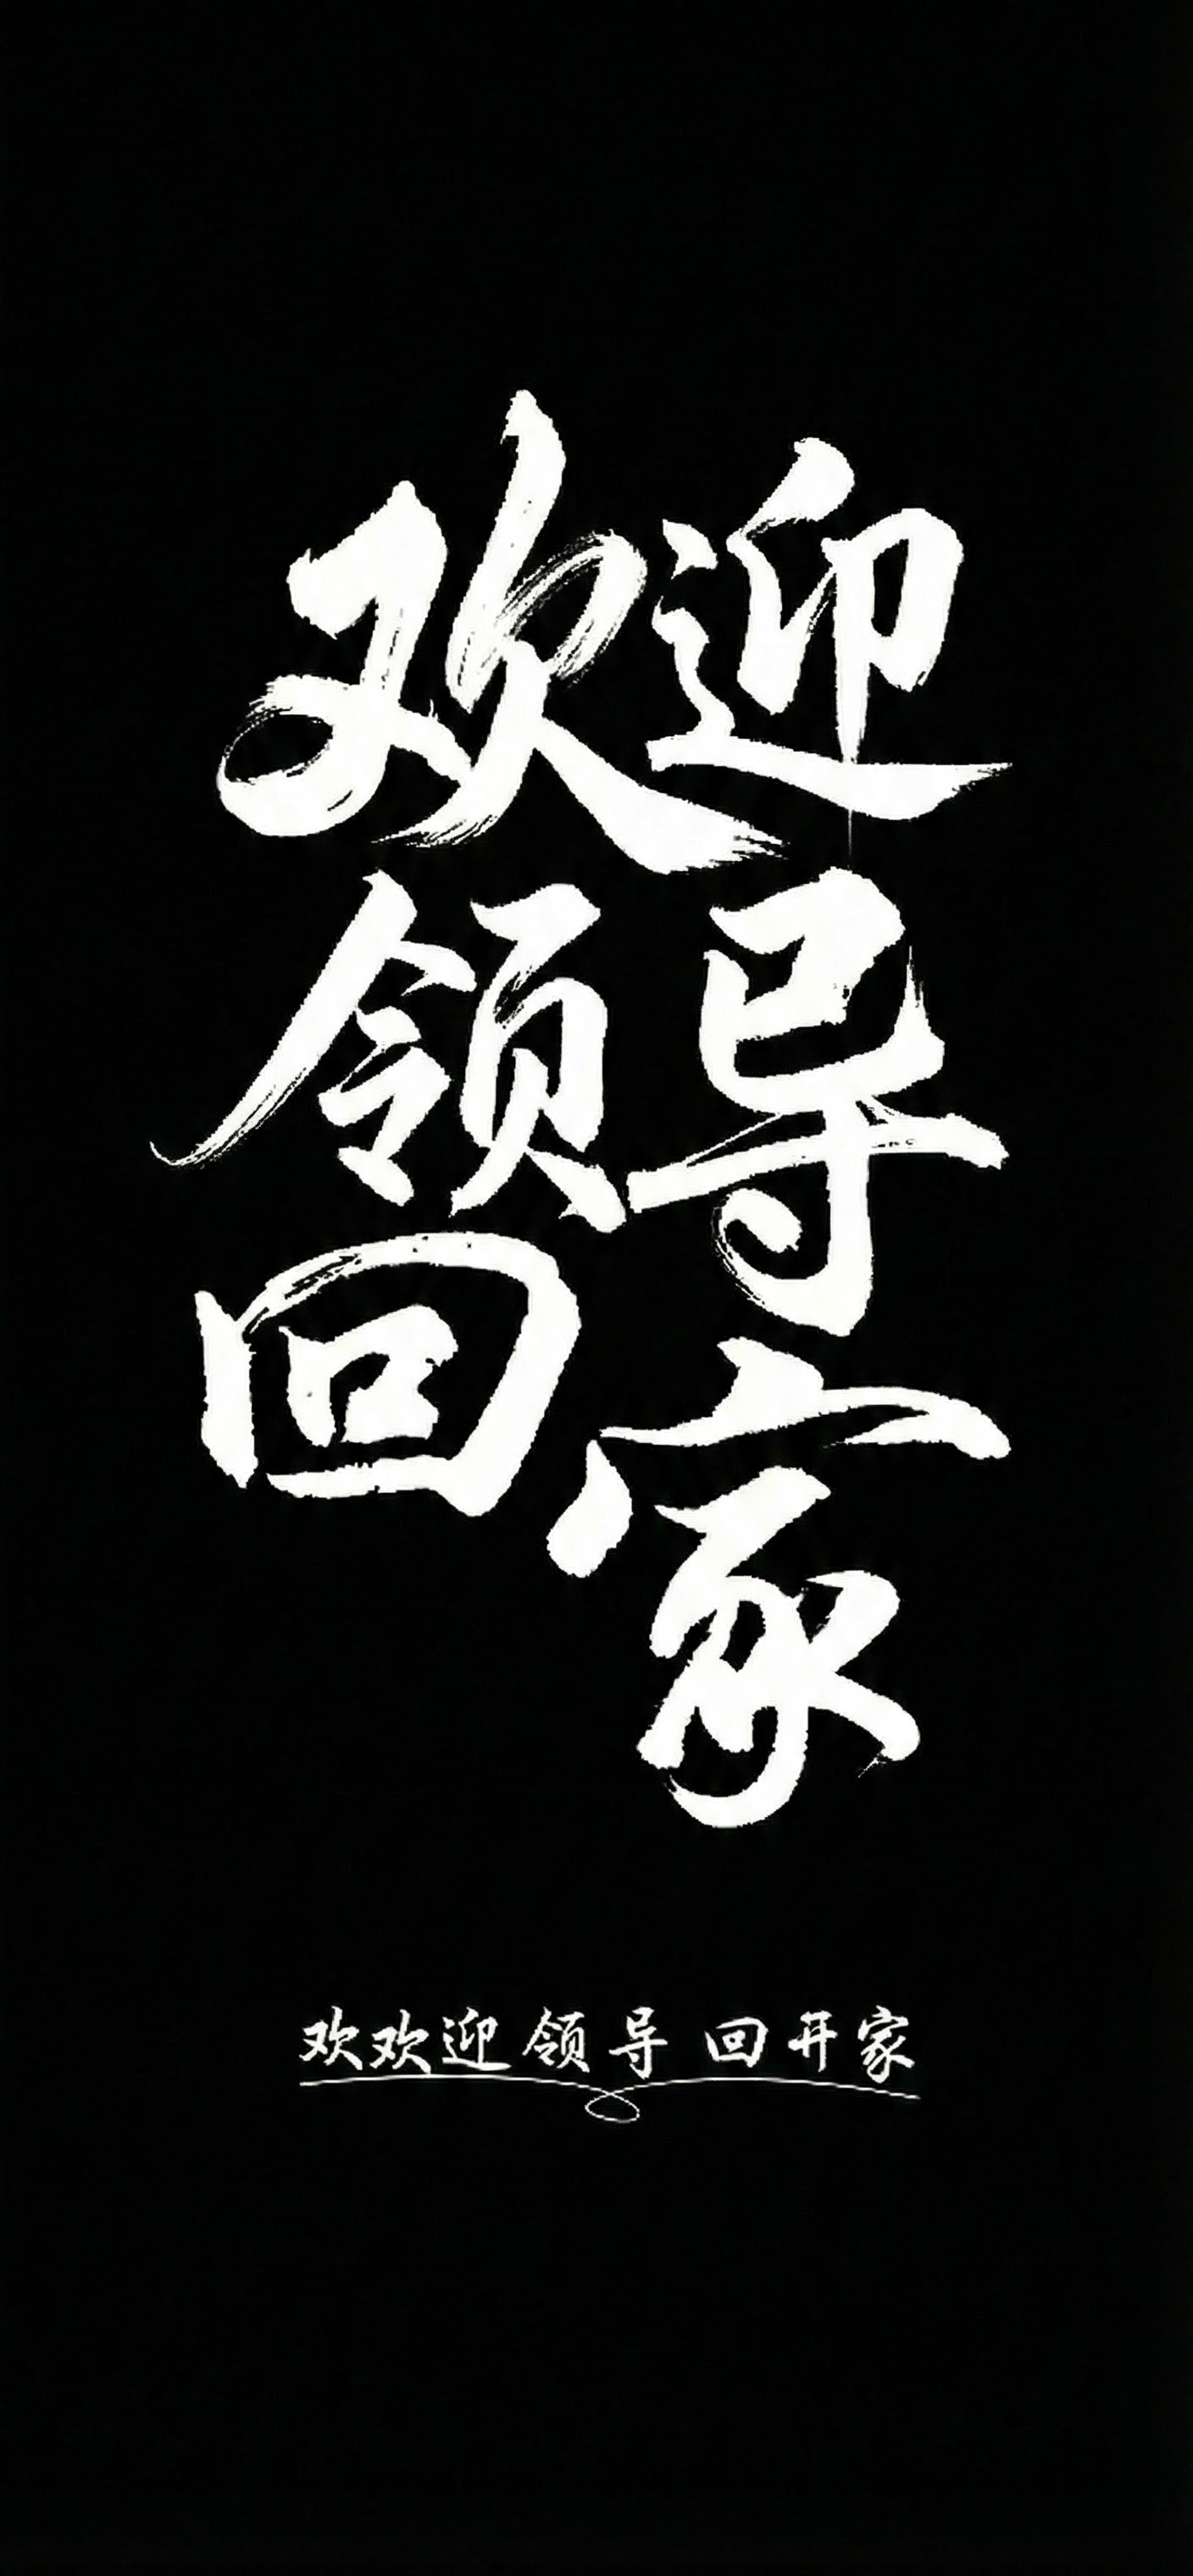 欢迎
领导
回家
欢欢迎领导 回开家